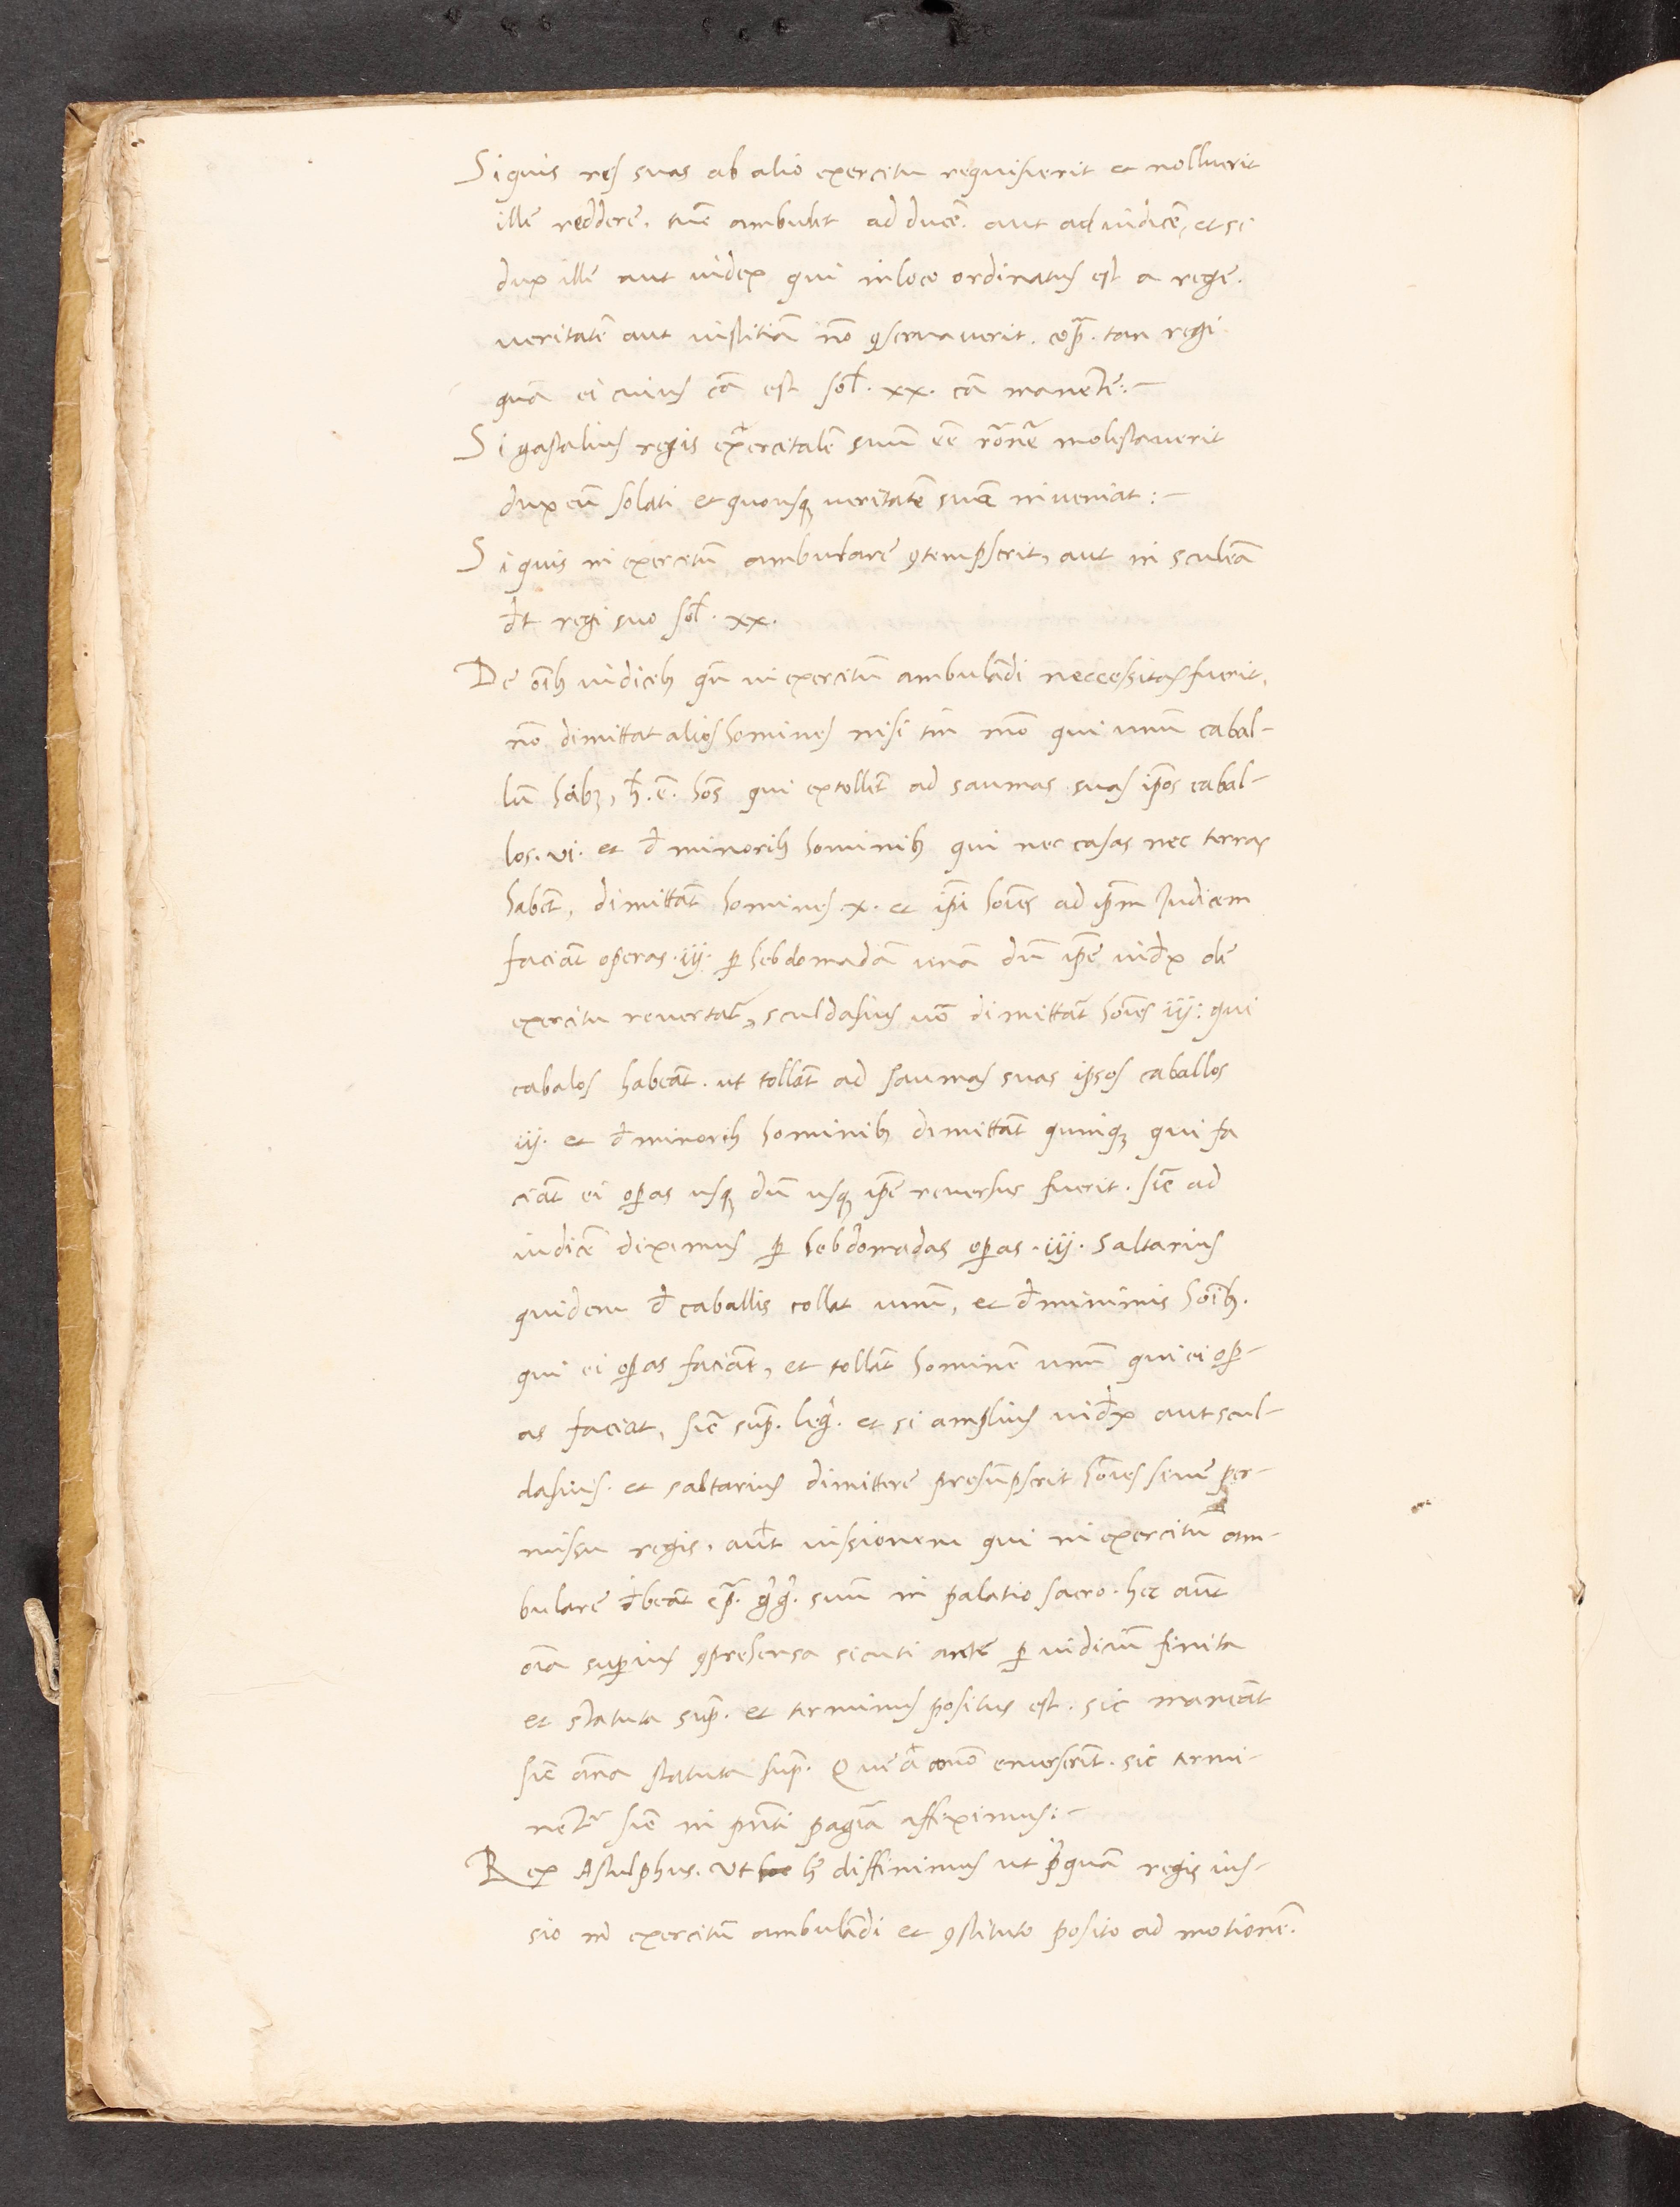 Siquis res suas ab alio exercitu requisierit et nolluerit
ille reddere. tūc ambulet ad ducē. aut ad iudicē, et si
dux ille aut iudex qui in loco ordinatus est a rege.
veritatē aut iustitiā nō ꝯservaverit. cōp̄. tan regi
quā ei cuius cā est sol̄. xx. cā manente:~
Si gastalius regis exercitalē suum c̄c̄ rōnē molestaverit
dux eū solati et quousq̨ veritatē suā inveniat:~
Si quis in exercitū ambulare ꝯtempserit, aut in sculcā
dt̄ regi suo sol̄. xx.
De oīb iudicib qn̄ in exercitū ambulādi neccessitas fuerit,
nō dimittat alios homines nisi tm̄ mō qui unū cabal-
lū habꝫ, h̄. ē. hōs qui extollēt ad saumas suas ip̄os cabal-
los. vi. et d̄ minorib hominib qui nec casas nec terras
habēt, dimittāt homines. x. et ip̄i hōies ad ip̄m Iudicem
faciāt operas. iij. ꝑ hebdomadā unā dū ip̄e iud̄x de
exercitu revertat̄, sculdasius vō dimittāt hōies iij: qui
cabalos habeāt. ut tollāt ad saumas suas ipsos caballos
iij. et d̄ minorib hominib dimittāt quinq̨ qui fa
ciāt ei oꝑas usq̨ dū usq̨ ip̄e reversus fuerit. sic̄ ad
iudicē diximus ꝑ hebdomadas oꝑas. iij. Saltarius
quidem d̄ caballis collat unū, et d̄ minimis hōib.
qui ei oꝑas faciāt, et tollāt hominē unū qui ei oꝑ-
as faciat, sic̄ sup̄. legr̄. et si amplius iud̄x aut scul-
dasius. et saltarius dimittere presūpserit hōies sine per-
missu regis, aut̄ iussionem qui in exercitū am-
bulare d̄beāt cp̄. gr̄gr̄. suū in palatio sacro. hec aūt
oīa suꝑius ꝯprehensa sicuti ante ꝑ iudiciū finita
et statuta sup̄. et terminus positus est. sic maneāt
sic̄ oīna statuta sup̄. Que a mō emerserīt. sic termi-
nent̄ sic̄ in pn̄ti pagīa affiximus:~
Rex Astulphus. Ut h̄ diffinimus ut pꝰquā regis ius-
sio in exercitū ambulādi et ꝯstituto posito ad motionē.